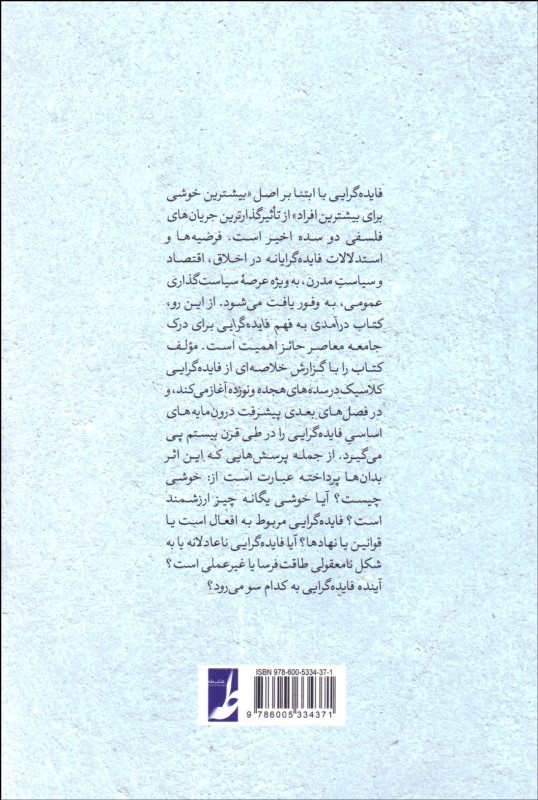 فایده‌گرایی با ابتنا بر اصل «بیشترین خوشی
برای بیشترین افراد» از تأثیرگذارترین جریان‌های
فلسفی دو سده اخیر است. فرضیه‌ها و
استدلالات فایده‌گرایانه در اخلاق، اقتصاد
و سیاستِ مدرن، به ویژه عرصهٔ سیاست‌گذاری
عمومی، به وفور یافت می‌شود. از این رو،
کتاب درآمدی به فهم فایده‌گرایی برای درک
جامعه معاصر حائز اهمیت است. مؤلف
کتاب را با گزارش خلاصه‌ای از فایده‌گرایی
کلاسیک در سده‌های هجده و نوزده آغاز می‌کند، و
در فصل‌های بعدی پیشرفت درون‌مایه‌های
اساسی فایده‌گرایی را در طی قرن بیستم پی
می‌گیرد. از جمله پرسش‌هایی که این اثر
بدان‌ها پرداخته عبارت است از: خوشی
چیست؟ آیا خوشی یگانه چیز ارزشمند
است؟ فایده‌گرایی مربوط به افعال است یا
قوانین یا نهادها؟ آیا فایده‌گرایی ناعادلانه یا به
شکل نامعقولی طاقت‌فرسا یا غیرعملی است؟
آینده فایده‌گرایی به کدام سو می‌رود؟
ISBN 978-600-5334-37-1
9 786005 334371